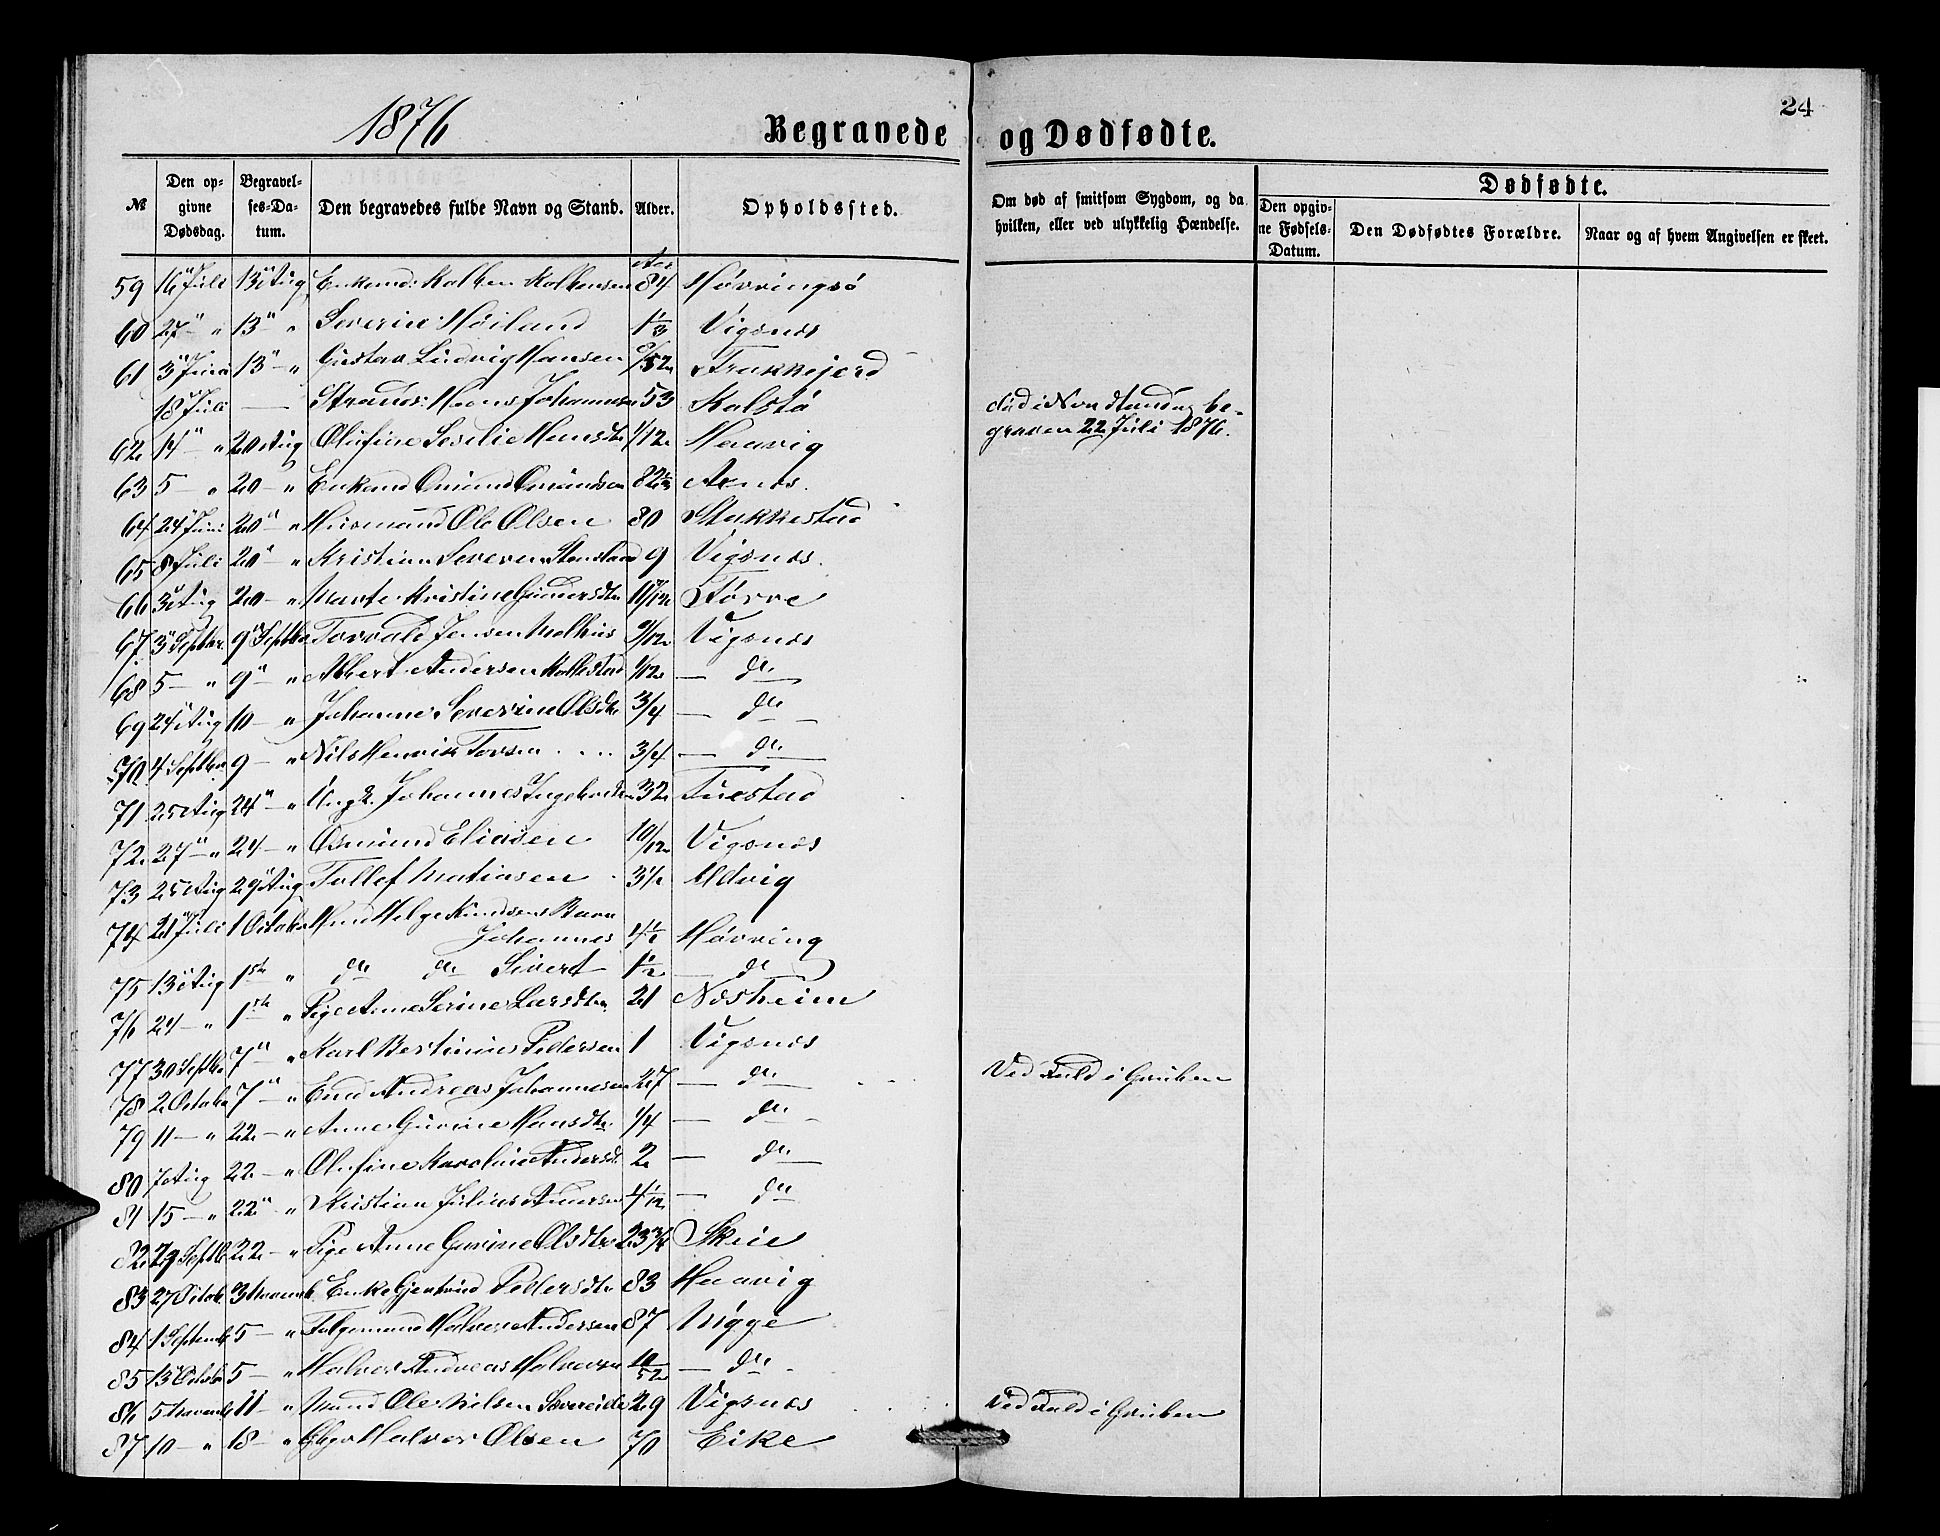 1876
24
Begravede og Dødfødte.
№ Den opgivne Dødsdag. Begravelses-Datum. Den begravedes fulde Navn og Stand. Alder. Opholdssted. Om død af smitsom Sygdom, og da hvilken, eller ved ulykkelig Hændelse. Dødfødte.
Den opgivne Fødsels-Datum. Den Dødfødtes Forældre. Naar og af hvem Angivelsen er skeet.
59 16 Juli 13 Aug Enkemd: Kolben Kolbensen 84 Hövringsö
60 27 " 13 " Severine Höiland 1 1/3 Vigsnæs
61 3 Juni 13 " Gustav Ludvig Hansen /52 Trakkejerd
18 Juli — Strands: Hans Johannesen 53 Kalstö död i Nordstandog be-
graven 22 Juli 1876.
62 14 " 20 Aug Olufine Sesilie Hansdtr 1/12 Haavig
63 5 " 20 " Enkemd Omund Omundsen 82 Aenes
64 24 Juni 20 " Husmand Ole Olsen 80 Stakkestad
65 8 Juli 20 " Kristian Severin 9 Vigsnæs
66 3 Aug 20 " Marte Kristine Gundersdtr 11 Förre
67 3 Septbr. 9 Septbr Torvald Jensen Melhus 9/12 Vigsnæs
68 5 " 9 " Albert Andersen Kallestad 1/12 — do
69 24 Aug 10 " Johanne Severine Olsdtr 3/4 — do —
70 4 Septbr 9 " Nils Henrik Torsen 3/4 — do
71 25 Aug 24 " Ungk. Johannes 32 Tuestad
72 27 " 24 " Osmund Eliasen 10/12 Vigsnæs
73 25 Aug 29 Aug Tollef Matiasen 3 1/2 Udvig
74 21 Juli 1 Octobr Mand Helge Knudsens Barn
Johannes 4 1/2 Hövring
75 13 Aug 1ste " do do Sivert 1 1/2 — do
76 24 " 1ste " Pige Anne Serine Larsdtr 21 Næsheim
77 30 Septbr 7 " Karl Bertinius Pedersen 1 Vigsnæs
78 2 Octobr 7 " Andreas Johannesen 27 — do — Ved Fald i Gruben
79 11 " 22 " Anne Gurine Hansdtr. 1/4 — do —
80 7 Aug 22 " Olufine Karoline Andersdt. 2 — do
81 15 " 22 " Kristian Julius Andersen 4/12 — do
82 29 Septb 22 " Pige Anne Gurine Olsdtr 23 3/4 Skeie
83 27 Octob. 3 Novemb. Enke Gjertrud Pedersdtr 83 Haavig
84 1 Septemb 5 " Folgemand Halvor Andersen 87 Nygge
85 13 Octobr 5 " Halvor Andreas Halvorsen 10/52 — do
86 5 Novemb 11 " Mand Ole Nilsen Sævereide 29 Vigsnæs Ved Fald i Gruben
87 10 " 18 " Halvor Olsen 70 Eike